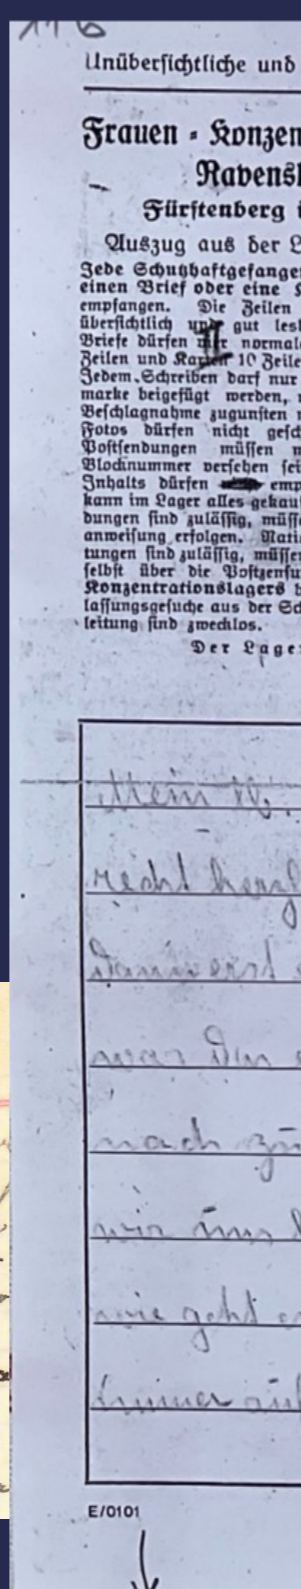 116
Unübersichtliche und
Frauen - Konzen
Ravensb
Fürstenberg i
Auszug aus der L
Jede Schutzhaftgefange
einen Brief oder eine K
empfangen. Die Zeilen
übersichtlich und gut lesb
Briefe dürfen normal
Zeilen und Karten 10 Zeile
Jedem Schreiben darf nur
marke beigefügt werden,
Beschlagnahme zugunsten
Fotos dürfen nicht gesch
Postsendungen müssen m
Blocknummer versehen sei
Inhalts dürfen emp
kann im Lager alles gekau
dungen sind zulässig, müss
anweisung erfolgen. Nati
tungen sind zulässig, müssen
selbst über die Postzensu
Konzentrationslagers b
lassungsgesuche aus der Sch
leitung sind zwecklos.
Der Lager
Mein
recht herzl
war
nach zu
wir uns
wie geht e
immer
E/0101